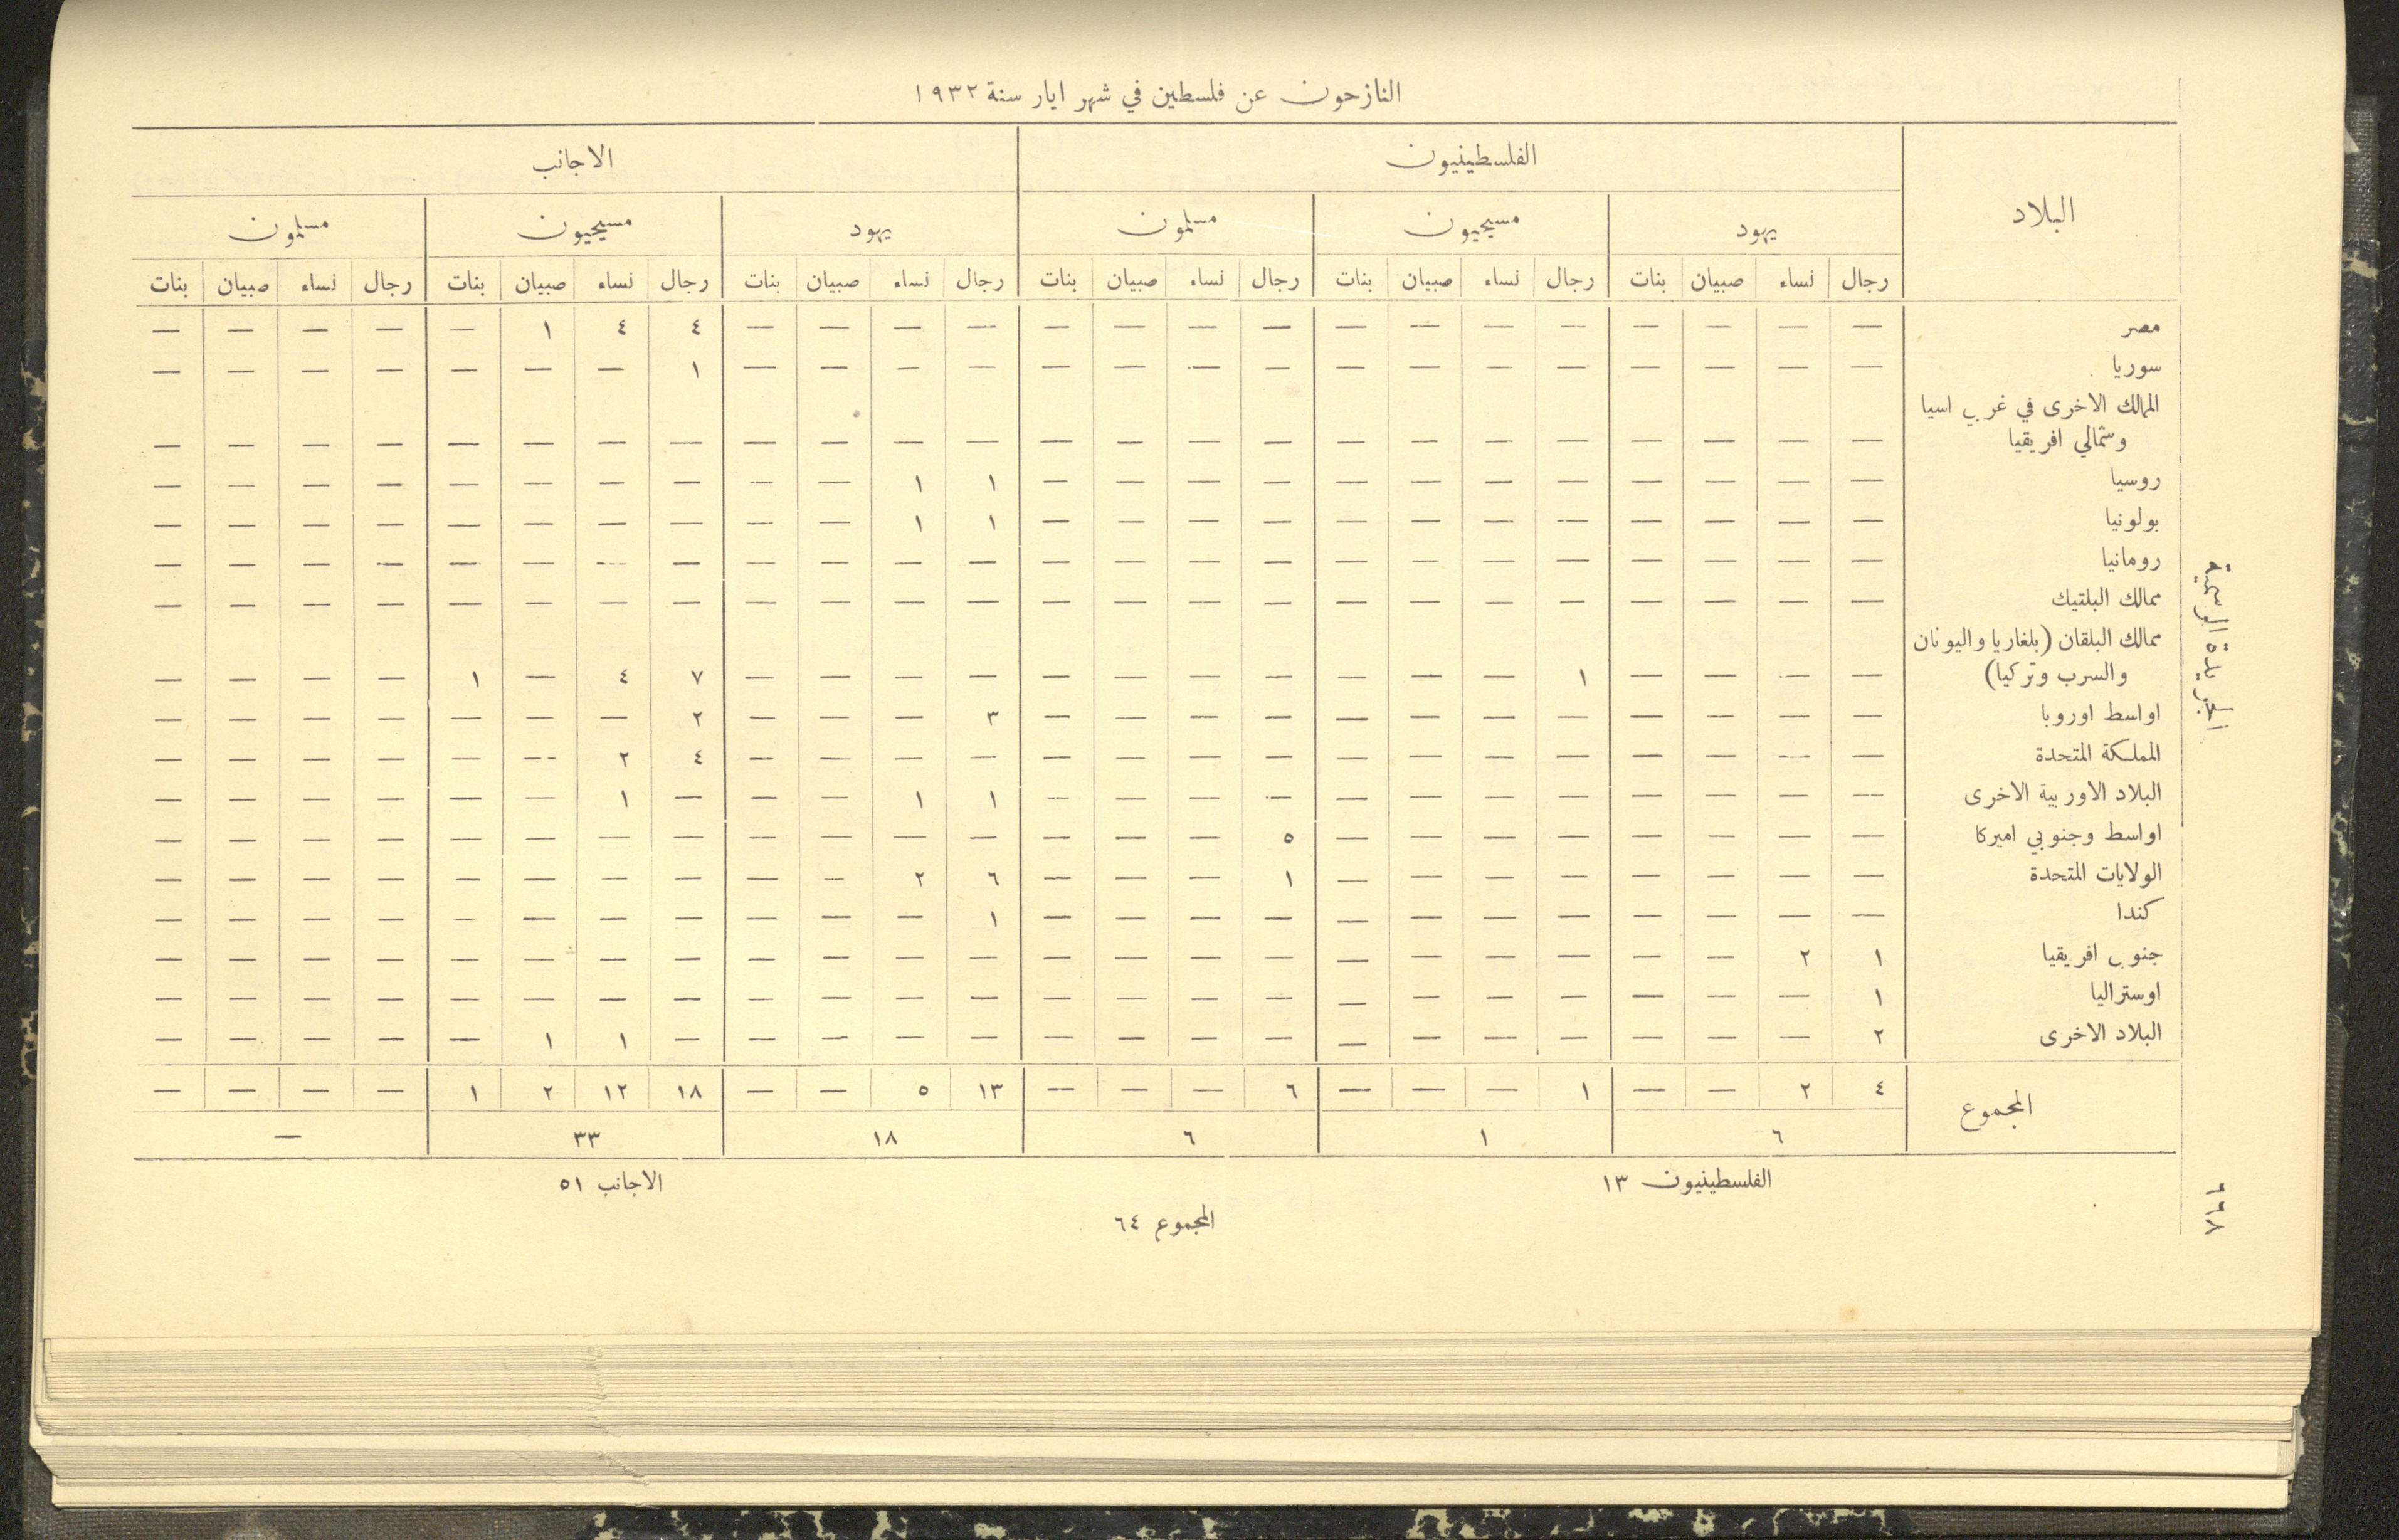 النازحون عن فلسطين في شهر ايار سنة ١٩٣٢
البلاد | الفلسطينيون | الاجانب
يهود | مسيحيون | مسلمون | يهود | مسيحيون | مسلمون
رجال | نساء | صبيان | بنات | رجال | نساء | صبيان | بنات | رجال | نساء | صبيان | بنات | رجال | نساء | صبيان | بنات | رجال | نساء | صبيان | بنات | رجال | نساء | صبيان | بنات
مصر | — | — | — | — | — | — | — | — | — | — | — | — | — | — | — | — | ٤ | ٤ | ١ | — | — | — | — | —
سوريا | — | — | — | — | — | — | — | — | — | — | — | — | — | — | — | — | ١ | — | — | — | — | — | — | —
الممالك الاخرى في غربي اسيا
وشمالي افريقيا | — | — | — | — | — | — | — | — | — | — | — | — | — | — | — | — | — | — | — | — | — | — | — | —
روسيا | — | — | — | — | — | — | — | — | — | — | — | — | ١ | ١ | — | — | — | — | — | — | — | — | — | —
بولونيا | — | — | — | — | — | — | — | — | — | — | — | — | ١ | ١ | — | — | — | — | — | — | — | — | — | —
رومانيا | — | — | — | — | — | — | — | — | — | — | — | — | — | — | — | — | — | — | — | — | — | — | — | —
ممالك البلتيك | — | — | — | — | — | — | — | — | — | — | — | — | — | — | — | — | — | — | — | — | — | — | — | —
ممالك البلقان (بلغاريا واليونان
والسرب وتركيا) | — | — | — | — | ١ | — | — | — | — | — | — | — | — | — | — | — | ٧ | ٤ | — | ١ | — | — | — | —
اواسط اوروبا | — | — | — | — | — | — | — | — | — | — | — | — | ٣ | — | — | — | ٢ | — | — | — | — | — | — | —
المملكة المتحدة | — | — | — | — | — | — | — | — | — | — | — | — | — | — | — | — | ٤ | ٢ | — | — | — | — | — | —
البلاد الاوربية الاخرى | — | — | — | — | — | — | — | — | — | — | — | — | ١ | ١ | — | — | — | ١ | — | — | — | — | — | —
اواسط وجنوبي اميركا | — | — | — | — | — | — | — | — | ٥ | — | — | — | — | — | — | — | — | — | — | — | — | — | — | —
الولايات المتحدة | — | — | — | — | — | — | — | — | ١ | — | — | — | ٦ | ٢ | — | — | — | — | — | — | — | — | — | —
كندا | — | — | — | — | — | — | — | — | — | — | — | — | ١ | — | — | — | — | — | — | — | — | — | — | —
جنوب افريقيا | ١ | ٢ | — | — | — | — | — | — | — | — | — | — | — | — | — | — | — | — | — | — | — | — | — | —
اوستراليا | ١ | — | — | — | — | — | — | — | — | — | — | — | — | — | — | — | — | — | — | — | — | — | — | —
البلاد الاخرى | ٢ | — | — | — | — | — | — | — | — | — | — | — | — | — | — | — | — | ١ | ١ | — | — | — | — | —
المجموع | ٤ | ٢ | — | — | ١ | — | — | — | ٦ | — | — | — | ١٣ | ٥ | — | — | ١٨ | ١٢ | ٢ | ١ | — | — | — | —
٦ | ١ | ٦ | ١٨ | ٣٣ | —
الفلسطينيون ١٣ | الاجانب ٥١
المجموع ٦٤
الجريدة الرسمية
٦٦٧